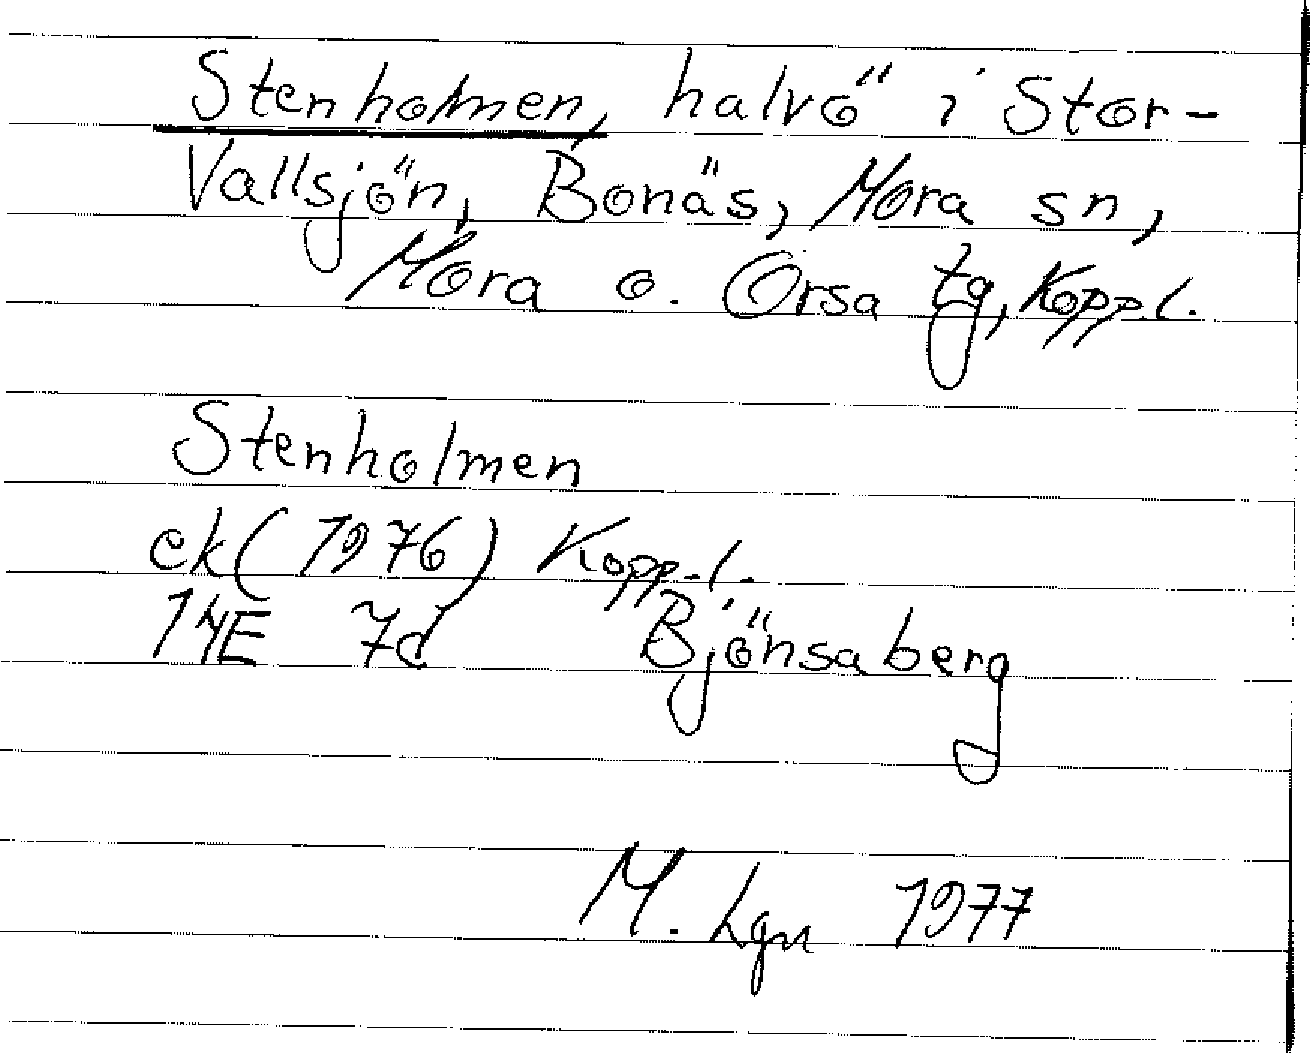 Stenholmen, halvö i Stor-
Vallsjön, Bonäs, Mora sn,
Mora o. Orsa tg, Kopp.l.
Stenholmen
ek (1976) Kopp.l.
14E 7d Björnsaberg
M. Lgn 1977